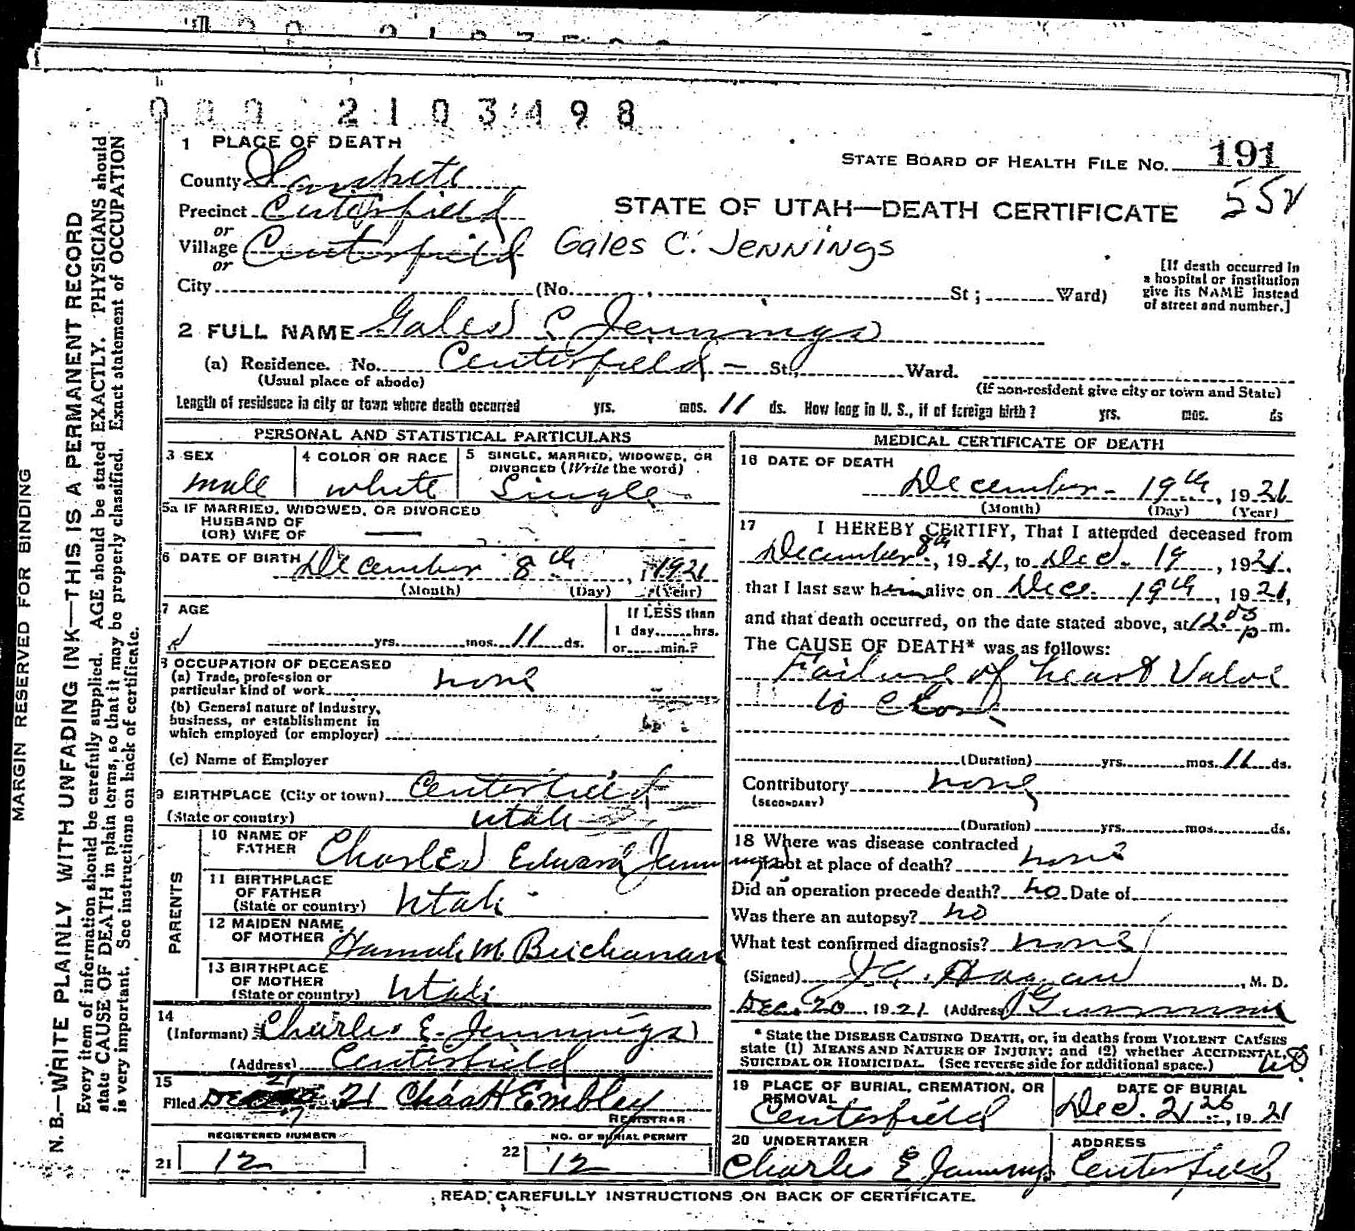 000 2103498
1 PLACE OF DEATH
STATE BOARD OF HEALTH FILE NO. 191
County Sanpete
552
Precinct Centerfield
STATE OF UTAH—DEATH CERTIFICATE
or
Village Centerfield Gales C. JENNINGS
or
[If death occurred in a hospital or institution give its NAME instead of street and number.]
City (No. St; Ward)
2 FULL NAME Gales C Jennings
(a) Residence. No. Centerfield — St., Ward.
(Usual place of abode) (If non-resident give city or town and State)
Length of residence in city or town where death occurred yrs. mos. 11 ds. How long in U. S., if of foreign birth? yrs. mos. ds
PERSONAL AND STATISTICAL PARTICULARS
3 SEX male
4 COLOR OR RACE white
5 SINGLE, MARRIED, WIDOWED, OR DIVORCED (Write the word) Single
5a IF MARRIED, WIDOWED, OR DIVORCED
HUSBAND OF
(OR) WIFE OF —
6 DATE OF BIRTH December 8th, 1921
(Month) (Day) (Year)
7 AGE
yrs. mos. 11 ds.
If LESS than
1 day hrs.
or min.?
8 OCCUPATION OF DECEASED
(a) Trade, profession or
particular kind of work none
(b) General nature of industry,
business, or establishment in
which employed (or employer)
(c) Name of Employer
9 BIRTHPLACE (City or town) Centerfield
(State or country) Utah
PARENTS
10 NAME OF FATHER Charles Edward Jennings
11 BIRTHPLACE OF FATHER (State or country) Utah
12 MAIDEN NAME OF MOTHER Hannah M. Buchanan
13 BIRTHPLACE OF MOTHER (State or country) Utah
14
(Informant) Charles E. Jennings
(Address) Centerfield
15
21
Filed 21 Chas H Embley
REGISTRAR
REGISTERED NUMBER
21 12
NO. OF BURIAL PERMIT
22 12
MEDICAL CERTIFICATE OF DEATH
16 DATE OF DEATH
December 19th, 1921
(Month) (Day) (Year)
17 I HEREBY CERTIFY, That I attended deceased from
December 8th, 1921, to Dec. 19, 1921,
that I last saw him alive on Dec. 19th, 1921,
and that death occurred, on the date stated above, at 12 p m.
The CAUSE OF DEATH* was as follows:
Failure of heart Valve
to Close
(Duration) yrs. mos. 11 ds.
Contributory none
(SECONDARY)
(Duration) yrs. mos. ds.
18 Where was disease contracted
if not at place of death? none
Did an operation precede death? no Date of
Was there an autopsy? no
What test confirmed diagnosis? none
(Signed) J. A. Hagan, M. D.
Dec. 20 1921 (Address) Gunnison
* State the DISEASE CAUSING DEATH, or, in deaths from VIOLENT CAUSES
state (1) MEANS AND NATURE OF INJURY; and (2) whether ACCIDENTAL,
SUICIDAL or HOMICIDAL. (See reverse side for additional space.)
19 PLACE OF BURIAL, CREMATION, OR REMOVAL
Centerfield
DATE OF BURIAL
Dec. 21 1921
20 UNDERTAKER
Charles E Jennings
ADDRESS
Centerfield
READ CAREFULLY INSTRUCTIONS ON BACK OF CERTIFICATE.
MARGIN RESERVED FOR BINDING
N. B.—WRITE PLAINLY WITH UNFADING INK—THIS IS A PERMANENT RECORD
Every item of information should be carefully supplied. AGE should be stated EXACTLY. PHYSICIANS should
state CAUSE OF DEATH in plain terms, so that it may be properly classified. Exact statement of OCCUPATION
is very important. See instructions on back of certificate.